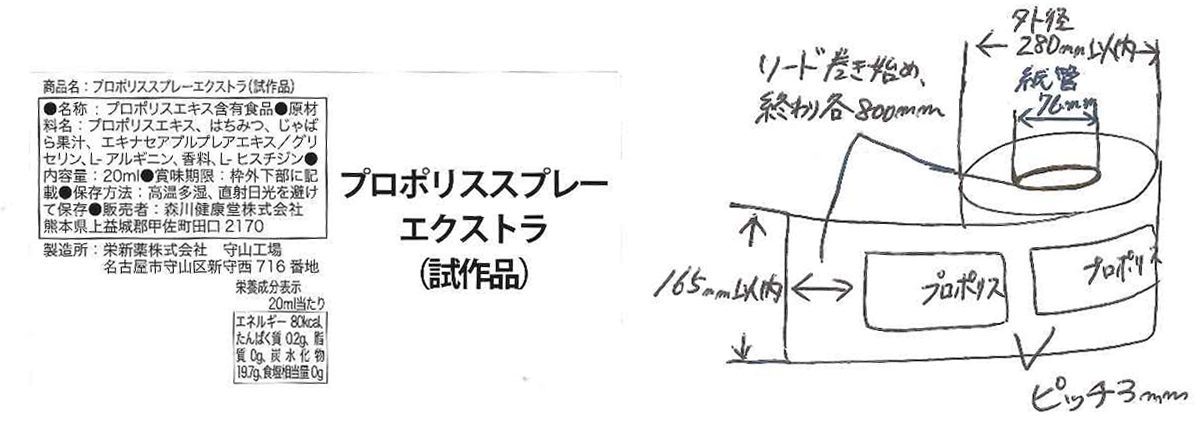 商品名：プロポリススプレーエクストラ（試作品）
●名称：プロポリスエキス含有食品●原材
料名：プロポリスエキス、はちみつ、じゃば
ら果汁、エキナセアプルプレアエキス／グリ
セリン、L-アルギニン、香料、L-ヒスチジン●
内容量：20ml●賞味期限：枠外下部に記
載●保存方法：高温多湿、直射日光を避け
て保存●販売者：森川健康堂株式会社
熊本県上益城郡甲佐町田口2170
製造所：栄新薬株式会社　守山工場
名古屋市守山区新守西716番地
栄養成分表示
20ml当たり
エネルギー80kcal、
たんぱく質0.2g、脂
質0g、炭水化物
19.7g、食塩相当量0g
プロポリススプレー
エクストラ
（試作品）
リード巻き始め、
終わり各800mm
外径
280mm以内
紙管
76mm
165mm以内
プロポリス
プロポリス
ピッチ3mm